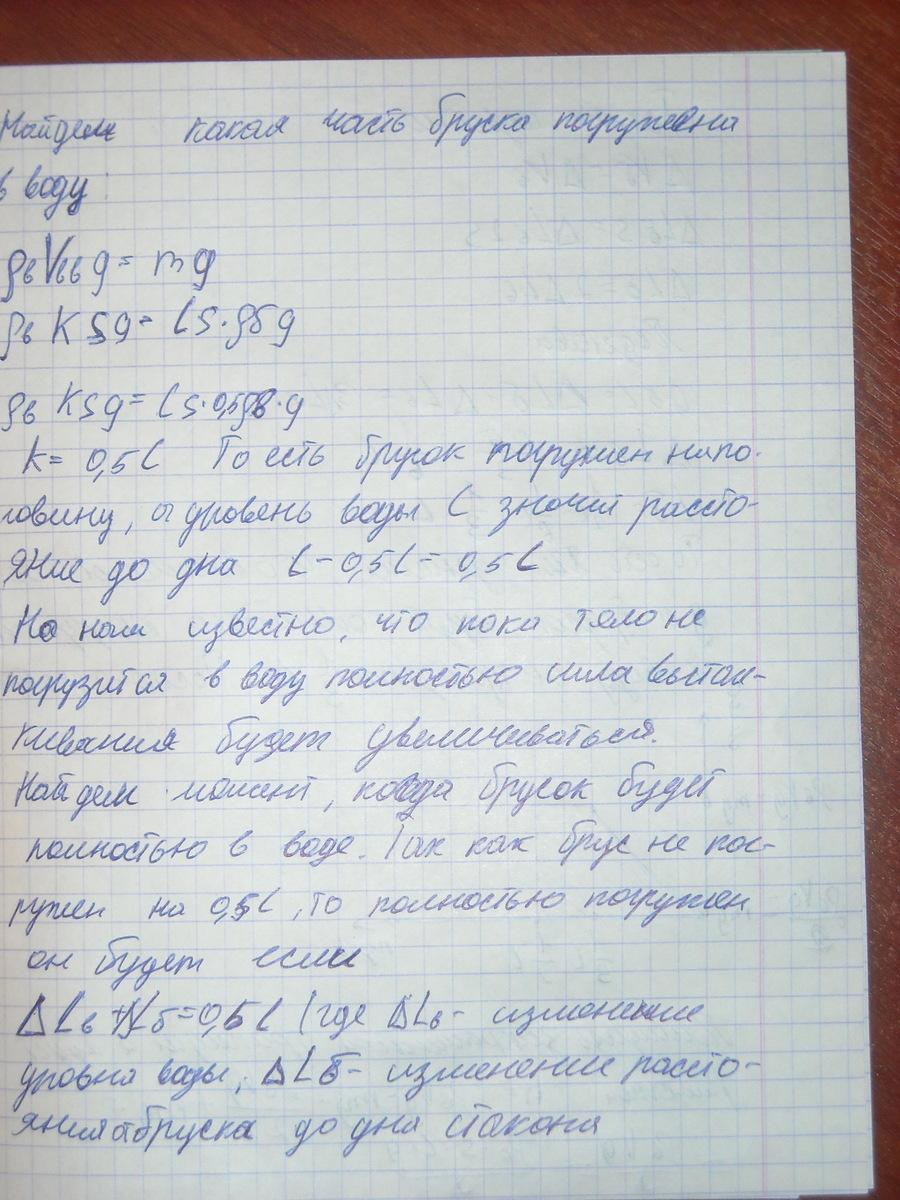 Найдем какая часть бруска погружена
в воду:
ρв Vвв g = mg
ρв K S g = L S · ρб g
ρв K S g = L S · 0,5 ρв · g
K = 0,5 L То есть брусок погружен напо-
ловину, а уровень воды L значит рассто-
яние до дна L - 0,5 L = 0,5 L
Но нам известно, что пока тело не
погрузится в воду полностью сила вытал-
кивания будет увеличиваться.
Найдем момент, когда брусок будет
полностью в воде. Так как брус не пог-
ружен на 0,5 L, то полностью погружен
он будет если
ΔLв + ΔLб = 0,5 L (где ΔLв - изменение
уровня воды, ΔLб - изменение рассто-
яния от бруска до дна стакана